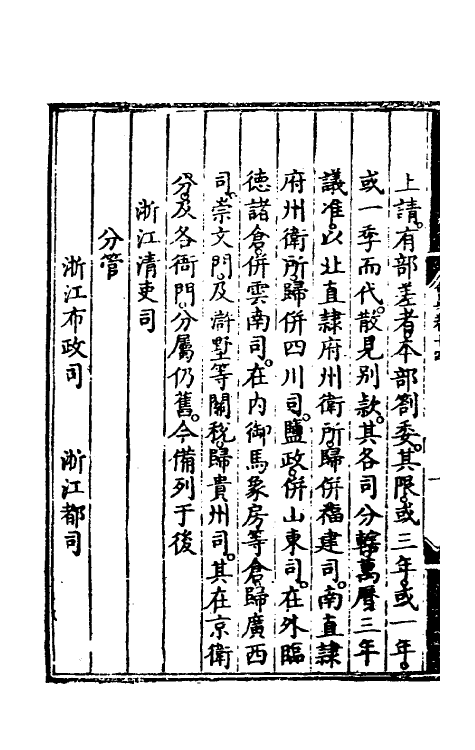 上請。有部差者。本部劄委。其限或三年。或一年。
或一季而代。散見別款。其各司分轄。萬曆三年
議准。以北直隸府州衛所。歸併福建司。南直隸
府州衛所。歸併四川司。鹽政。併山東司。在外臨
德諸倉。併雲南司。在內御馬象房等倉。歸廣西
司。崇文門。及滸墅等關稅。歸貴州司。其在京衛
分。及各衙門。分屬仍舊。今備列于後
浙江清吏司
分管
浙江布政司　浙江都司